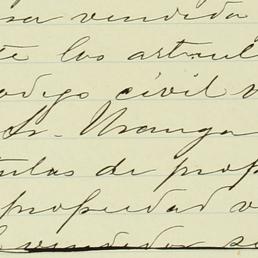 sa vendida
te los articul
odigo civil v
Sr. Uranga
tulos de prop
propiedad v
l vendedor se